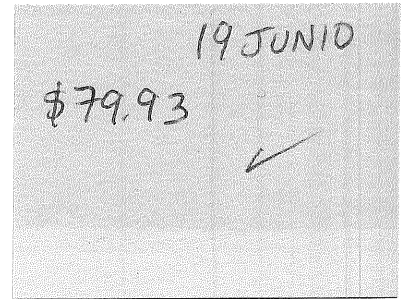 19 JUNIO
$79.93
✓